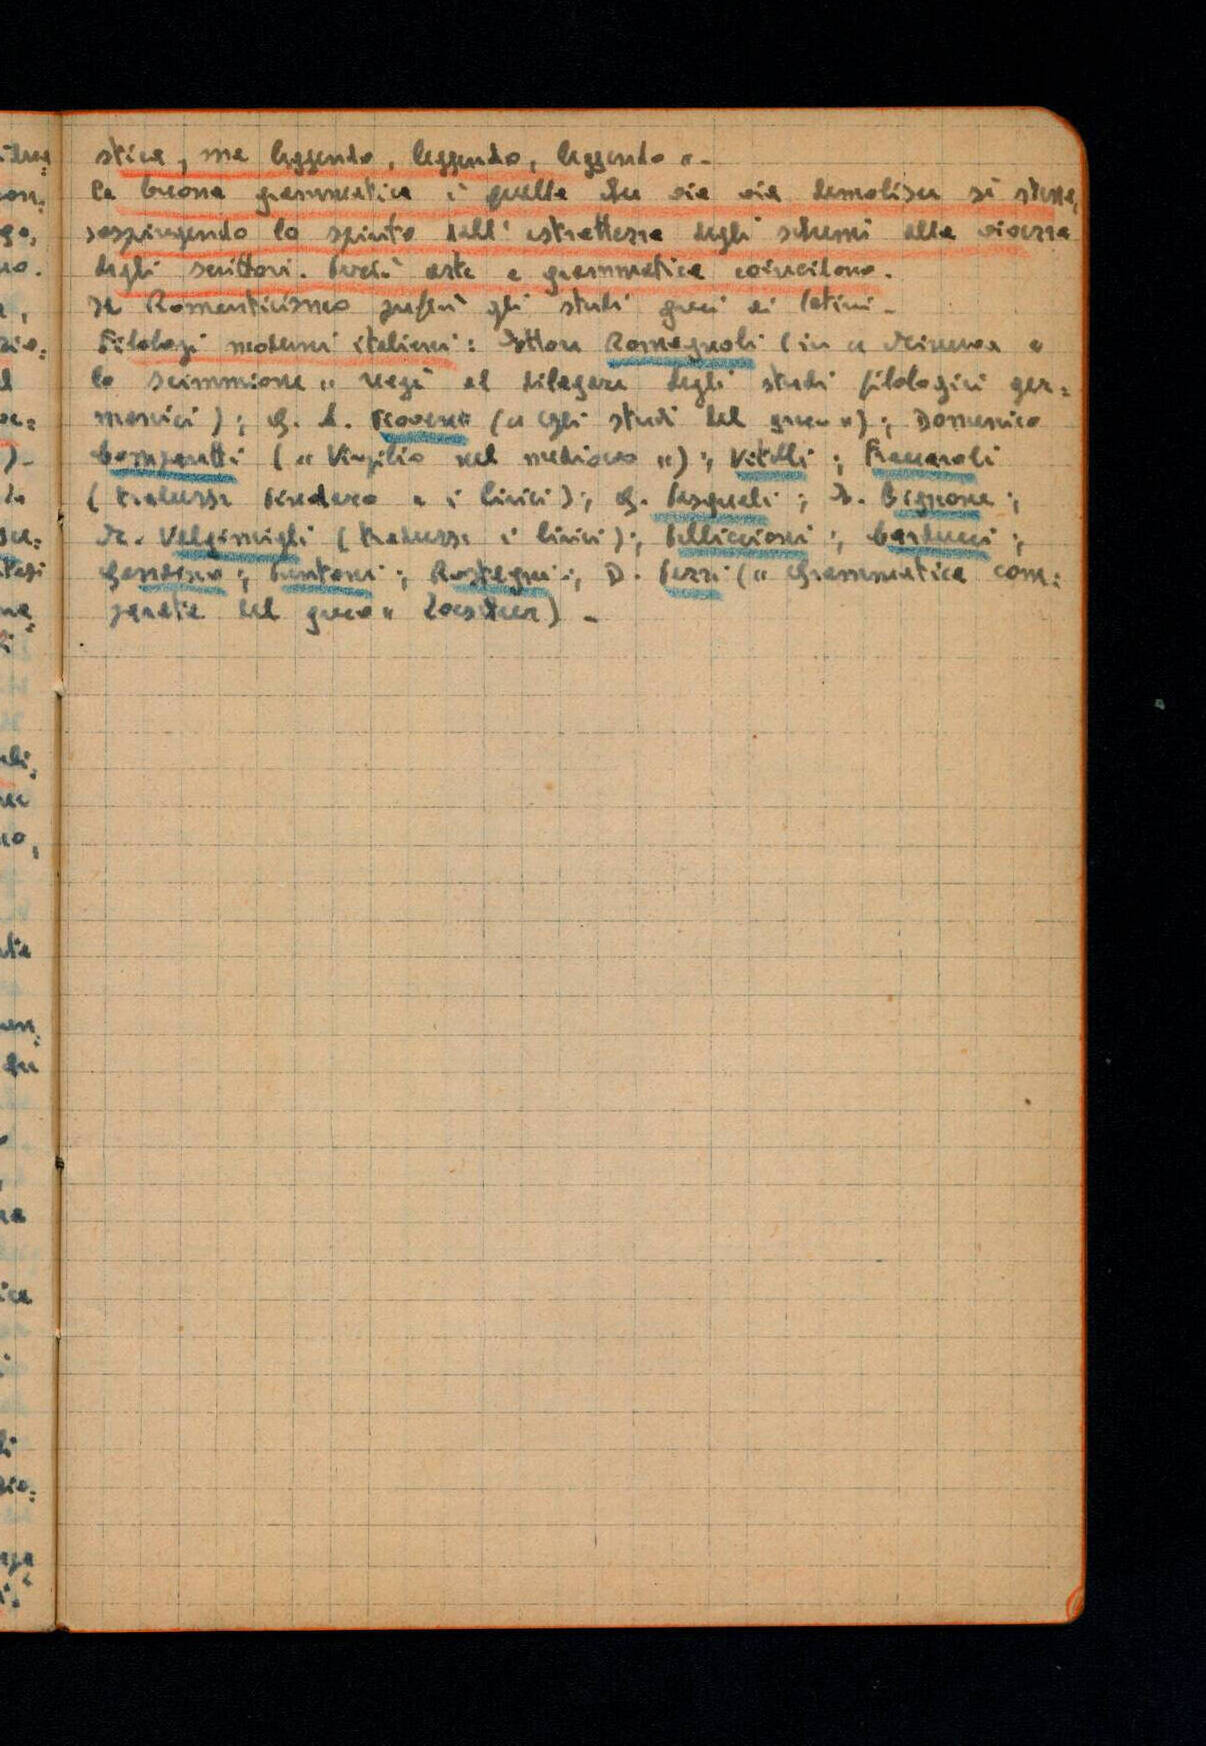 stica, ma leggendo, leggendo, leggendo «.
La buona grammatica è quella che via via demolisce sè stessa,
sospingendo lo spirito dall'astrattezza degli schemi alla vivezza
degli scrittori. Perciò arte e grammatica coincidono.
Il Romanticismo gli studi greci ai latini.
Filologi moderni italiani: Ettore Romagnoli (in « Minerva e
lo scimmione « negò al dilagare degli studi filologici ger=
manici); G. (« Gli studi del greco »); Domenico
Comparetti (« Virgilio nel medioevo «); Vitelli; Fraccaroli
(tradusse Pindaro e i lirici); G. Pasquali; E. Bignone;
M. Valgimigli (tradusse i lirici); Pelliccioni; Carducci;
Gandino; Puntoni; Rostagni; D. Pezzi (« Grammatica com=
parata del greco « Loescher).